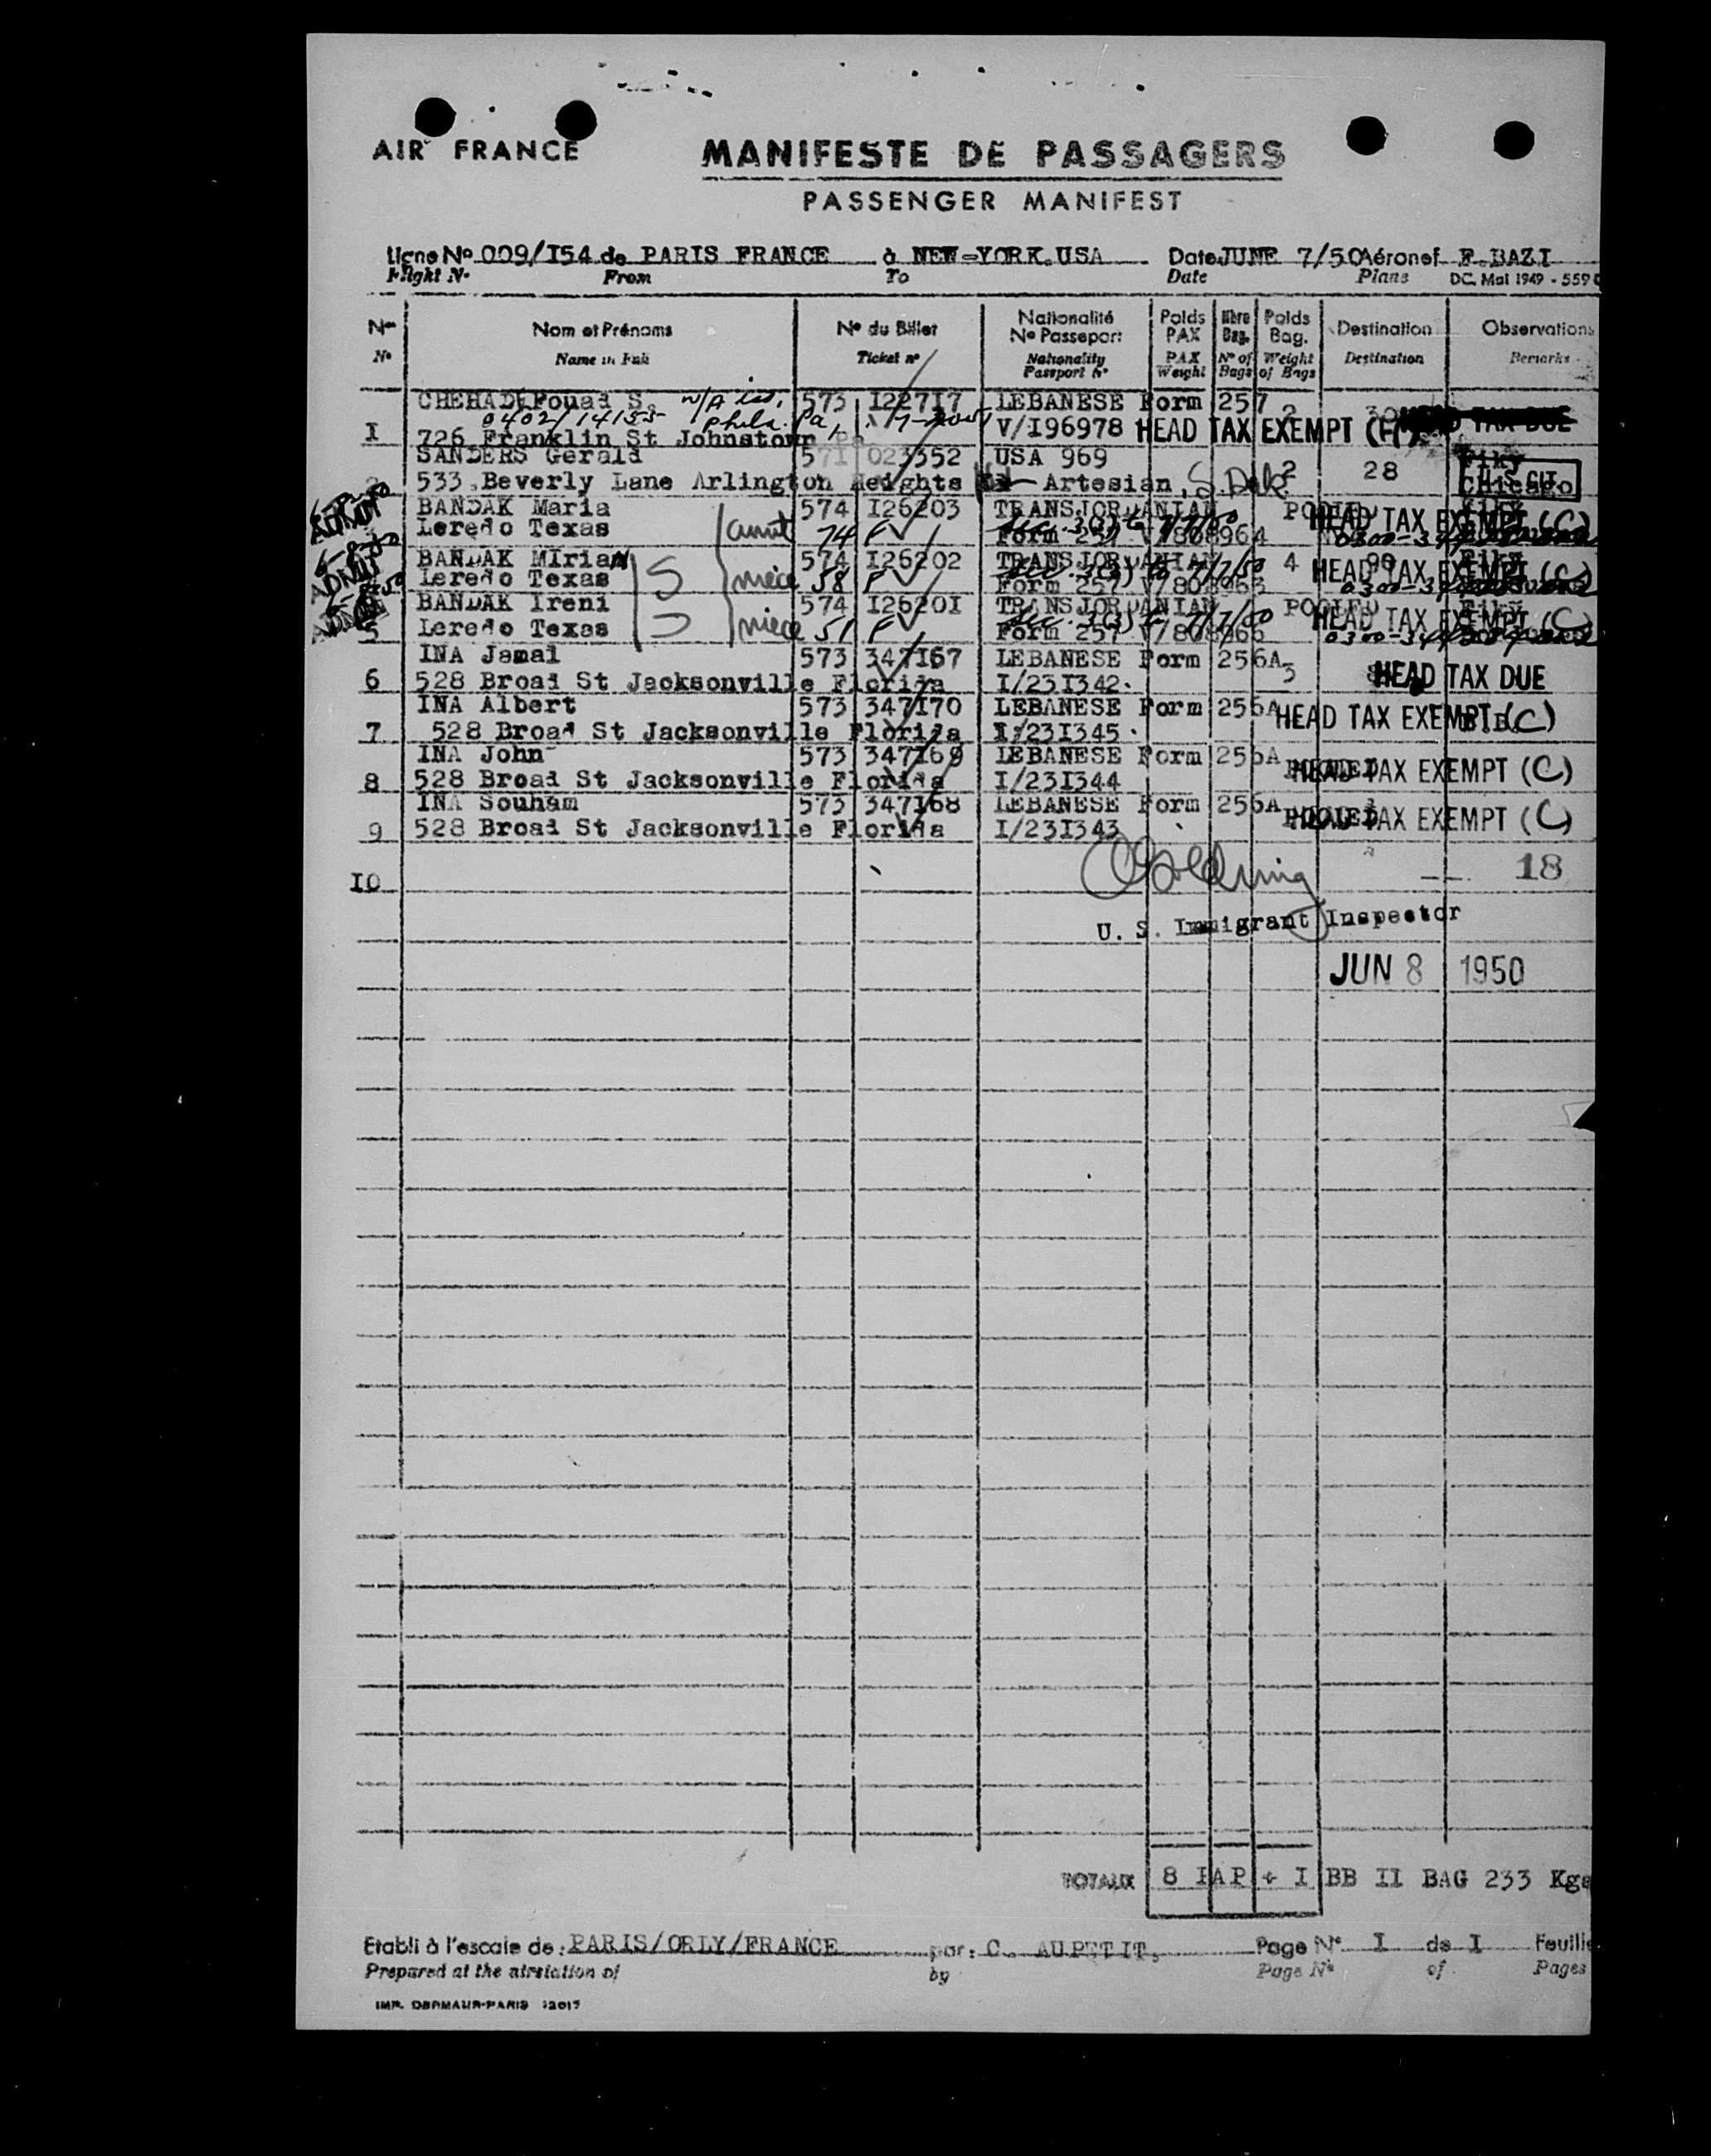 AIR FRANCE
MANIFESTE DE PASSAGERS
PASSENGER MANIFEST
Ligne No 009/I54 de PARIS FRANCE à NEW-YORK.USA Date JUNE 7/50 Aéronef F.BAZI
Flight No From To Date Plane DC. Mai 1949 - 559
No Nom et Prénoms No du Billet Nationalité No Passeport Poids PAX Nbre Bag. Poids Bag. Destination Observations
No Name in Full Ticket no Nationality Passport No PAX Weight No of Bags Weight of Bags Destination Remarks
CHEHADE Fouad S. 573 I227I7 LEBANESE Form 257
0402/14155 Phila. Pa,
I 726 Franklin St Johnstown Pa V/I96978 HEAD TAX EXEMPT HEAD TAX DUE
SANDERS Gerald 571 023352 USA 969
533 Beverly Lane Arlington Heights Artesian, S. Dak 2 28 Chicago U.S. CIT.
BANDAK Maria 574 I26203 TRANSJORDANIAN POOLED HEAD TAX EXEMPT (C)
Leredo Texas aunt 74 F Form 257 V/808964
BANDAK MIrian 574 I26202 TRANSJORDANIAN 4 HEAD TAX EXEMPT (C)
Leredo Texas S niece 58 F Form 257 V/808965
BANDAK Ireni 574 I26201 TRANSJORDANIAN POOLED HEAD TAX EXEMPT (C)
5 Leredo Texas niece 51 F Form 257 V/808966
INA Jamal 573 347I67 LEBANESE Form 256A 3
6 528 Broad St Jacksonville Florida I/23I342. HEAD TAX DUE
INA Albert 573 347I70 LEBANESE Form 256A HEAD TAX EXEMPT (C)
7 528 Broad St Jacksonville Florida I/23I345.
INA John 573 347I69 LEBANESE Form 256A POOLED HEAD TAX EXEMPT (C)
8 528 Broad St Jacksonville Florida I/23I344
INA Souham 573 347I68 LEBANESE Form 256A POOLED HEAD TAX EXEMPT (C)
9 528 Broad St Jacksonville Florida I/23I343
I0 18
U. S. Immigrant Inspector
JUN 8 1950
TOTAUX 8 IAP + I BB II BAG 233 Kgs
Etabli à l'escale de: PARIS/ORLY/FRANCE par: C. AUPETIT, Page No I de I Feuille
Prepared at the airstation of by Page No of Pages
IMP. DERMAUR-PARIS 12017